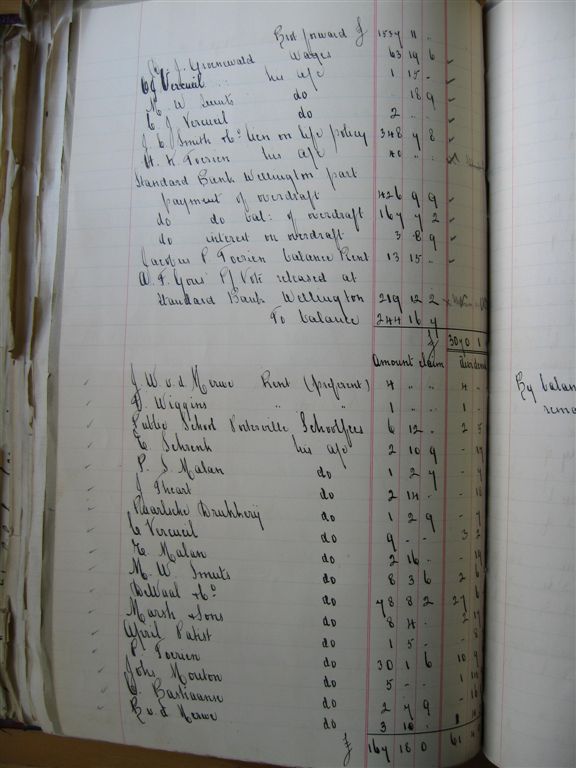 Brot forward £ 1557 11 ..
J. J. Groenewald Wages 63 19 6
C J Vercuil .. his a/c 1 15 -
M. W. Smuts do - 18 9
C. J Vercuil do 2 .. ..
J. C. Smith & Co lien on life policy 348 7 8
H. K Toerien his a/c 40 .. ..
Standard Bank Wellington part
payment of overdraft 426 9 9
do do bal: of overdraft 167 7 2
do interest on overdraft 3 8 9
Jacobus P Toerien balance Rent 13 15 ..
A. F. Gous' P/ Note released at
Standard Bank Wellington 219 12 2
To balance 244 16 7
£ 3070 1
Amount claim Dividend
J. W. v. d. Merwe Rent (preferent) 4 .. .. 4 -
D. Wiggins " " 1 .. .. 1 -
Public School Porterville Schoolfees 6 12 .. 2 5
C Schrenk his a/c 2 10 9 - 19
P. S. Malan do 1 2 7 - 7
J Theart do 2 14 .. - 18
Paarlsche Drukkerij do 1 2 9 - 7
C Vercuil do 9 - - 3 2
E. Malan do 2 16 .. - 19
M. W. Smuts do 8 3 6 2 6
DeWaal & Co do 78 8 2 27 6
Marsh & Sons do 8 4 .. 2 17
April Patist do 1 5 .. - 8
P. Toerien do 30 1 6 10 9
Johs Mouton do 5 - .. 1 14
Bastiaanse do 2 7 9 - 16
B. v. d. Merwe do 3 10 ..
£ 167 18 0 61 4
By balan
rema